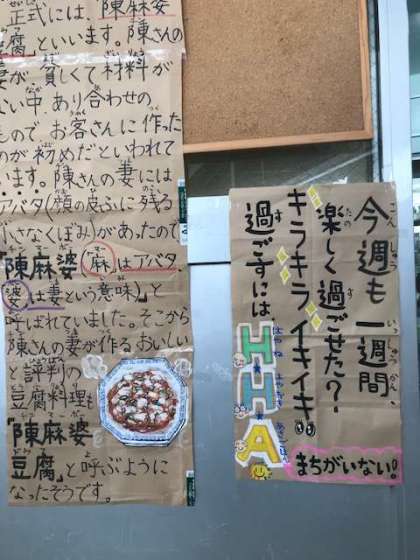 正式には、「陳麻婆
腐」といいます。陳さんの
妻が貧しくて材料が
い中あり合わせの
ので、お客さんに作った
のが初めだといわれて
います。陳さんの妻には
アバタ(顔の皮ふに残る
小さなくぼみ)があったので
「陳麻婆(麻はアバタ
婆は妻という意味)」と
呼ばれていました。そこから
陳さんの妻が作るおいしい
と評判の
豆腐料理も
「陳麻婆
豆腐」と呼ぶように
なったそうです。
今週も一週間
楽しく過ごせた?
キラキライキイキ
過ごすには、
H・H・A
まちがいない!